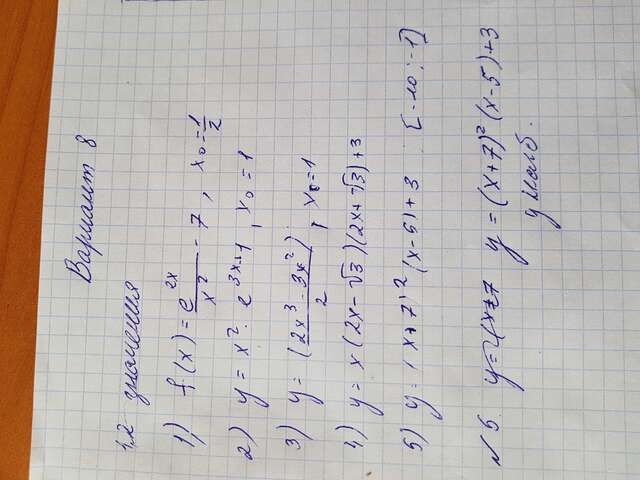 Вариант 8
1,2 знаменния
1) f(x) = e^2x / x^2 - 7, x0 = 1/2
2) y = x^2 · e^3x-1, x0 = 1
3) y = (2x^3 - 3x^2) / 2, x0 = 1
4) y = x(2x-√3)(2x+√3)+3
5) y = (x+7)^2 (x-5)+3 [-10;-1]
N 5 y = (x+7)^2 (x-5)+3
y наиб.